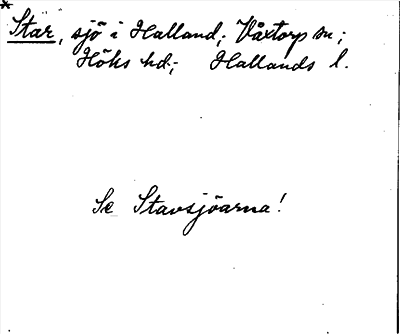 * Star, sjö i Halland; Våxtorp sn;
Höks hd; Hallands l.
Se Stavsjöarna!